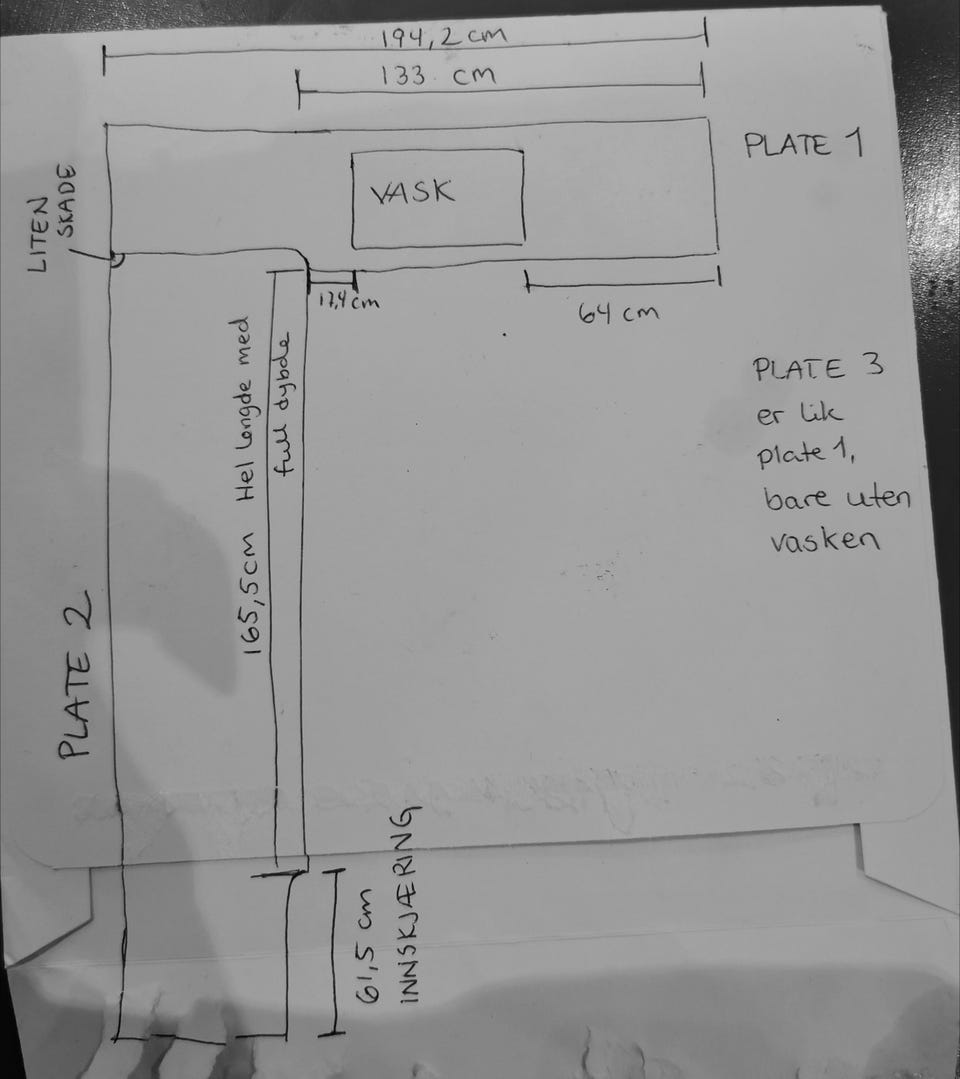 194,2 cm
133 cm
PLATE 1
VASK
LITEN
SKADE
17,4 cm
64 cm
PLATE 3
er lik
plate 1,
bare uten
vasken
165,5cm Hel lengde med
full dybde
PLATE 2
61,5 cm
INNSKJÆRING